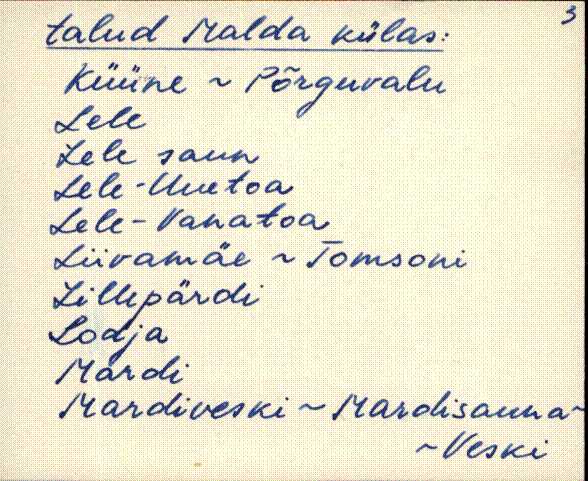 3
talud Malda külas:
Küüne ~ Põrguvalu
Lele
Lele saun
Lele-Uuetoa
Lele-Vanatoa
Liivamäe ~ Tomsoni
Lillepärdi
Lodja
Mardi
Mardiveski ~ Mardisauna ~
~ Veski